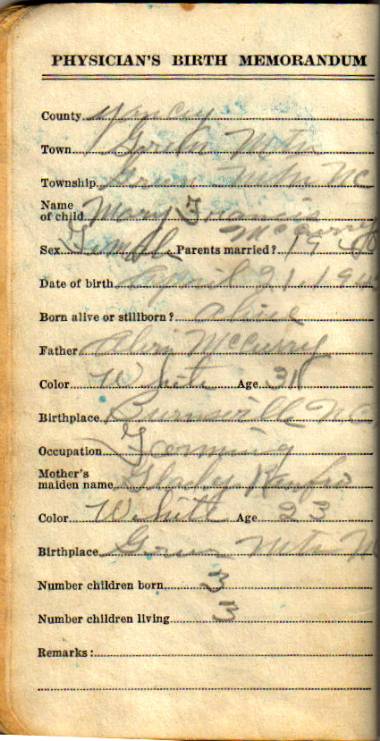 PHYSICIAN'S BIRTH MEMORANDUM
County Yancey
Town Green Mtn
Township Green Mtn NC
Name
of child Mary Francis
McCurry
Sex Femal Parents married? 19
Date of birth April 21, 19
Born alive or stillborn? alive
Father McCurry
Color White Age 31
Birthplace Burnsvill NC
Occupation Forming
Mother's
maiden name
Color Whitt Age 23
Birthplace Green Mtn N
Number children born 3
Number children living 3
Remarks: